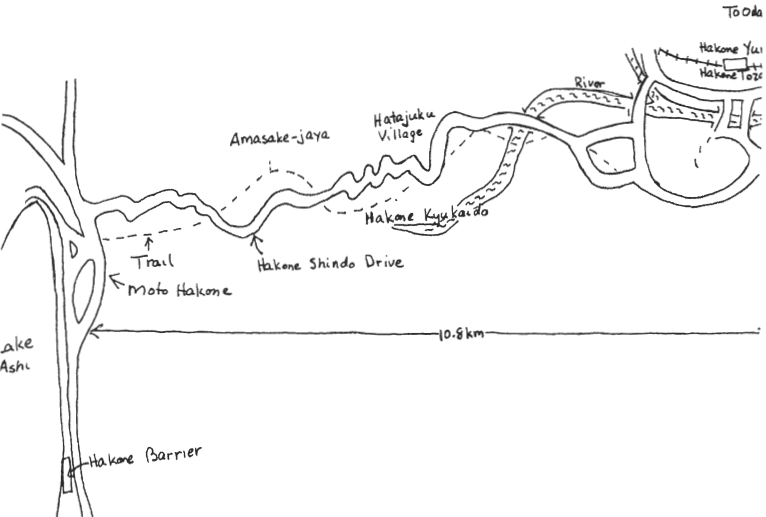 To Oda
Hakone Yu
Hakone Toz
River
Hatajuku
Village
Amasake-jaya
Hakone Kyukaido
Trail
Hakone Shindo Drive
Moto Hakone
10.8km
ake
Ashi
Hakone Barrier